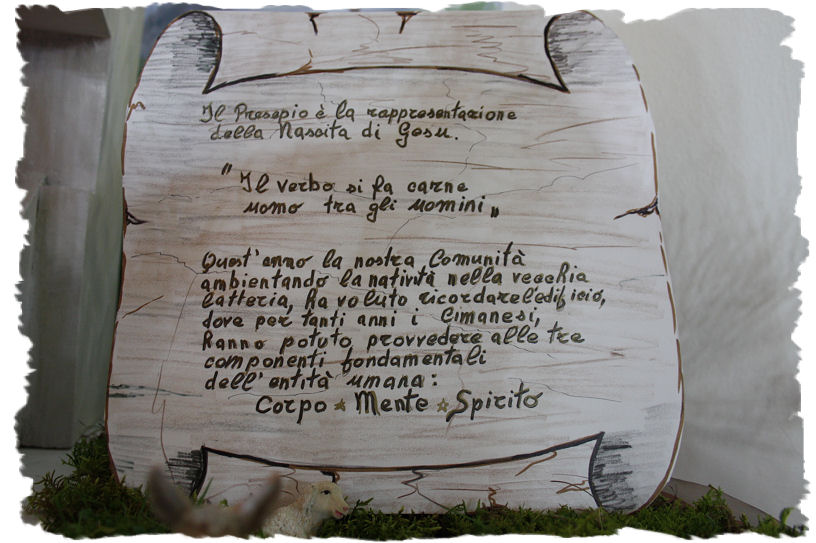 Il Presepio è la rappresentazione
della Nascita di Gesu.
"Il verbo si fa carne
uomo tra gli uomini"
Quest'anno la nostra Comunità
ambientando la natività nella vecchia
latteria, ha voluto ricordare l'edificio,
dove per tanti anni i Cimanesi,
hanno potuto provvedere alle tre
componenti fondamentali
dell'entità umana:
Corpo ☆ Mente ☆ Spirito